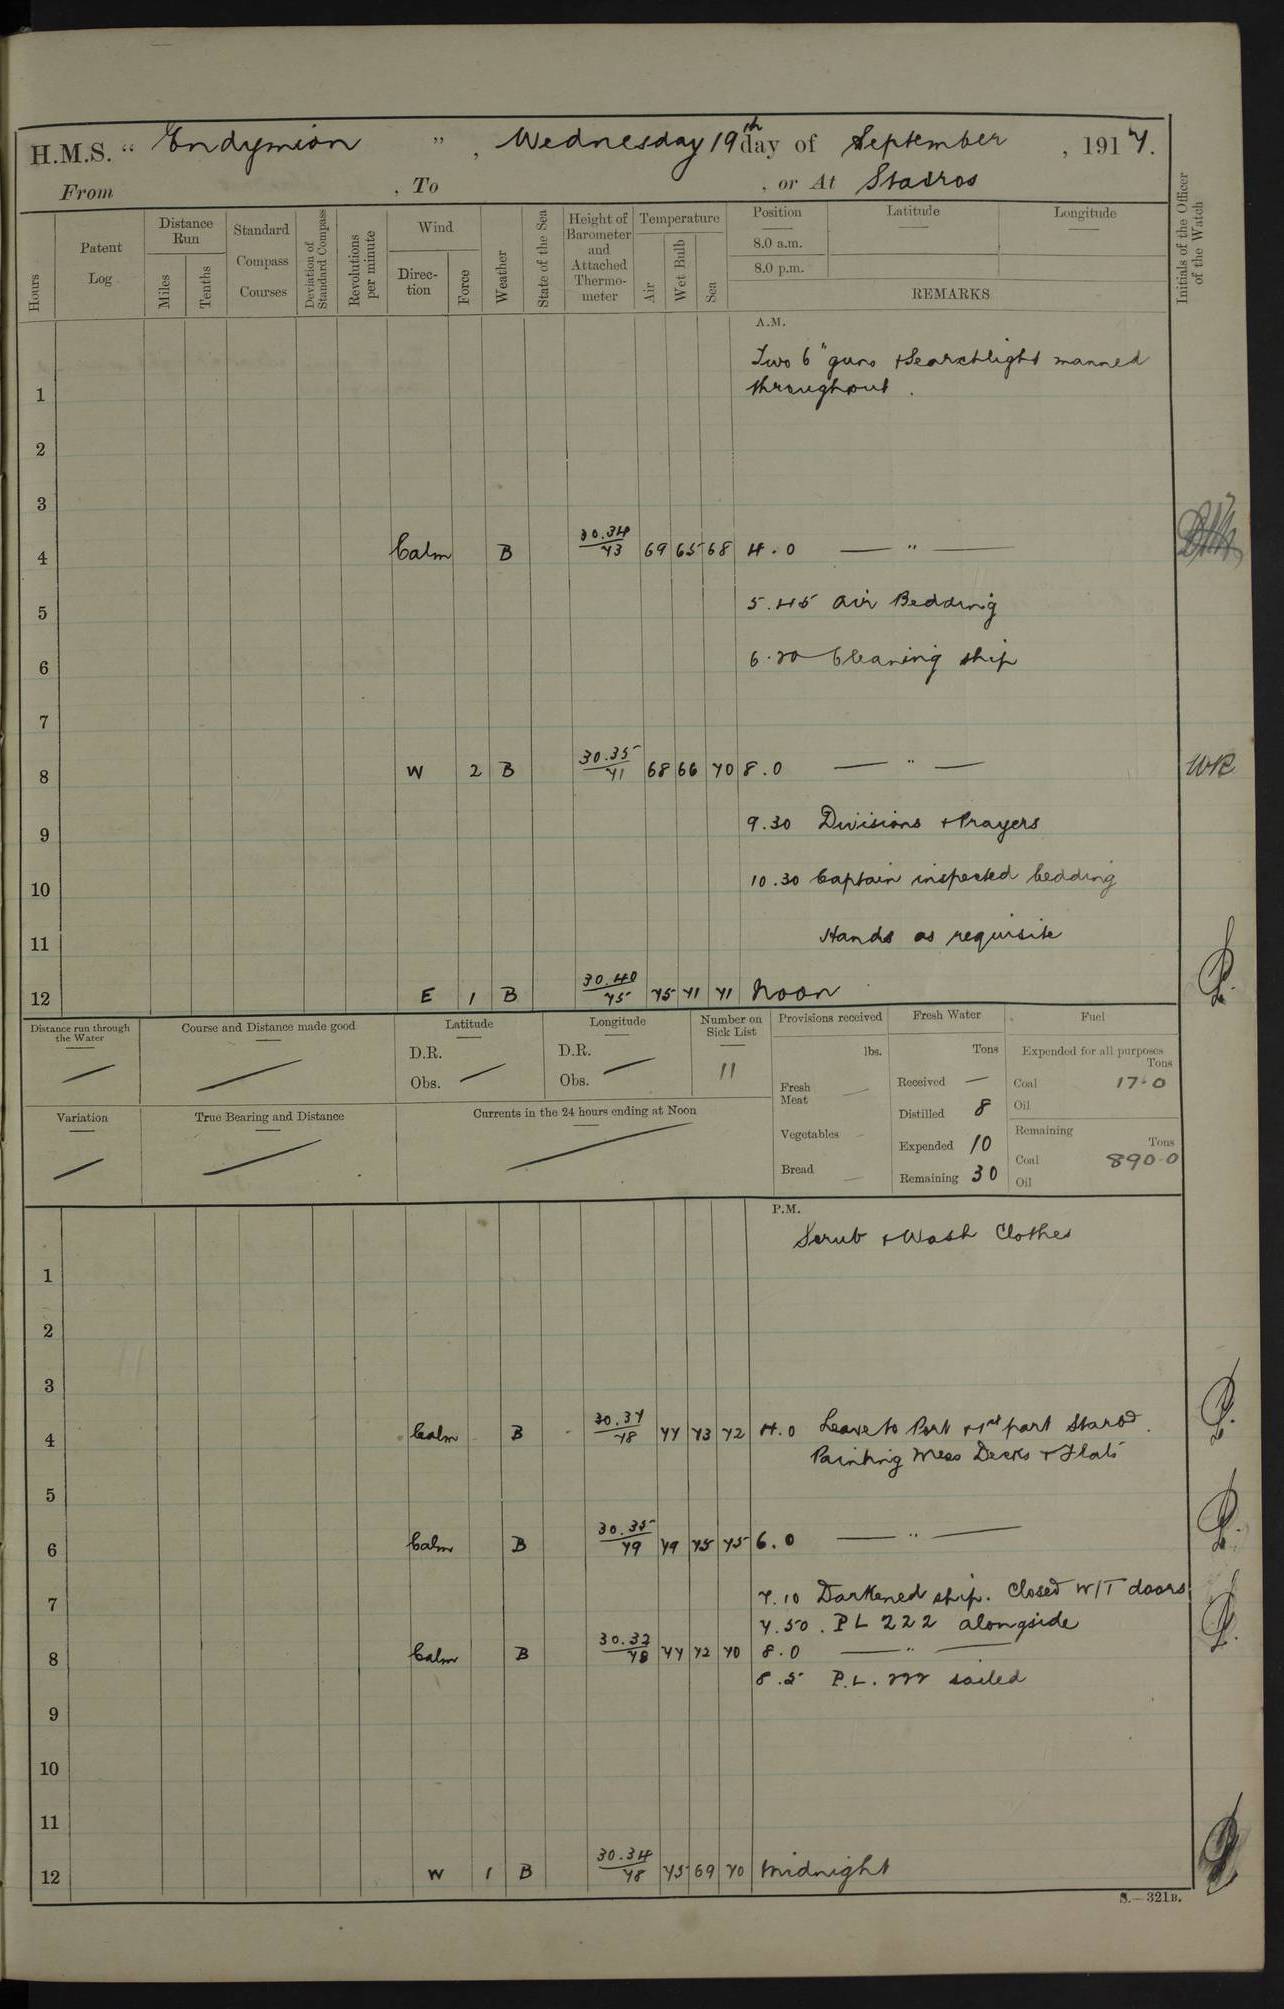 H.M.S. " Endymion ", Wednesday 19th day of September, 1917.
From , To , or At Stavros
Hours
Patent Log
Distance Run
Miles
Tenths
Standard Compass Courses
Deviation of Standard Compass
Revolutions per minute
Wind
Direction
Force
Weather
State of the Sea
Height of Barometer and Attached Thermometer
Temperature
Air
Wet Bulb
Sea
Position
8.0 a.m.
8.0 p.m.
Latitude
Longitude
REMARKS
Initials of the Officer of the Watch
A.M.
Two 6" guns + Searchlight manned
throughout.
1
2
3
4 Calm B 30.34/73 69 65 68 4.0 — " —
5 5.45 Air Bedding
6 6.20 Cleaning ship
7
8 W 2 B 30.35/71 68 66 70 8.0 — " — WR
9 9.30 Divisions + Prayers
10 10.30 Captain inspected bedding
11 Hands as requisite
12 E 1 B 30.40/75 75 71 71 Noon
Distance run through the Water
Course and Distance made good
Latitude
D.R.
Obs.
Longitude
D.R.
Obs.
Number on Sick List
11
Provisions received
lbs.
Fresh Meat —
Vegetables —
Bread —
Fresh Water
Tons
Received —
Distilled 8
Expended 10
Remaining 30
Fuel
Expended for all purposes
Tons
Coal 17.0
Oil
Remaining
Tons
Coal 890.0
Oil
Variation
True Bearing and Distance
Currents in the 24 hours ending at Noon
P.M.
Scrub + Wash Clothes
1
2
3
4 Calm B 30.37/78 77 73 72 4.0 Leave to Port + 1st part Starbd.
Painting Mess Decks + Flats
5
6 Calm B 30.35/79 79 75 75 6.0 — " —
7 7.10 Darkened ship. Closed W/T doors
7.50. PL 222 alongside
8 Calm B 30.32/78 77 72 70 8.0 — " —
8.5 P.L. 222 sailed
9
10
11
12 W 1 B 30.34/78 75 69 70 Midnight
S.—321B.